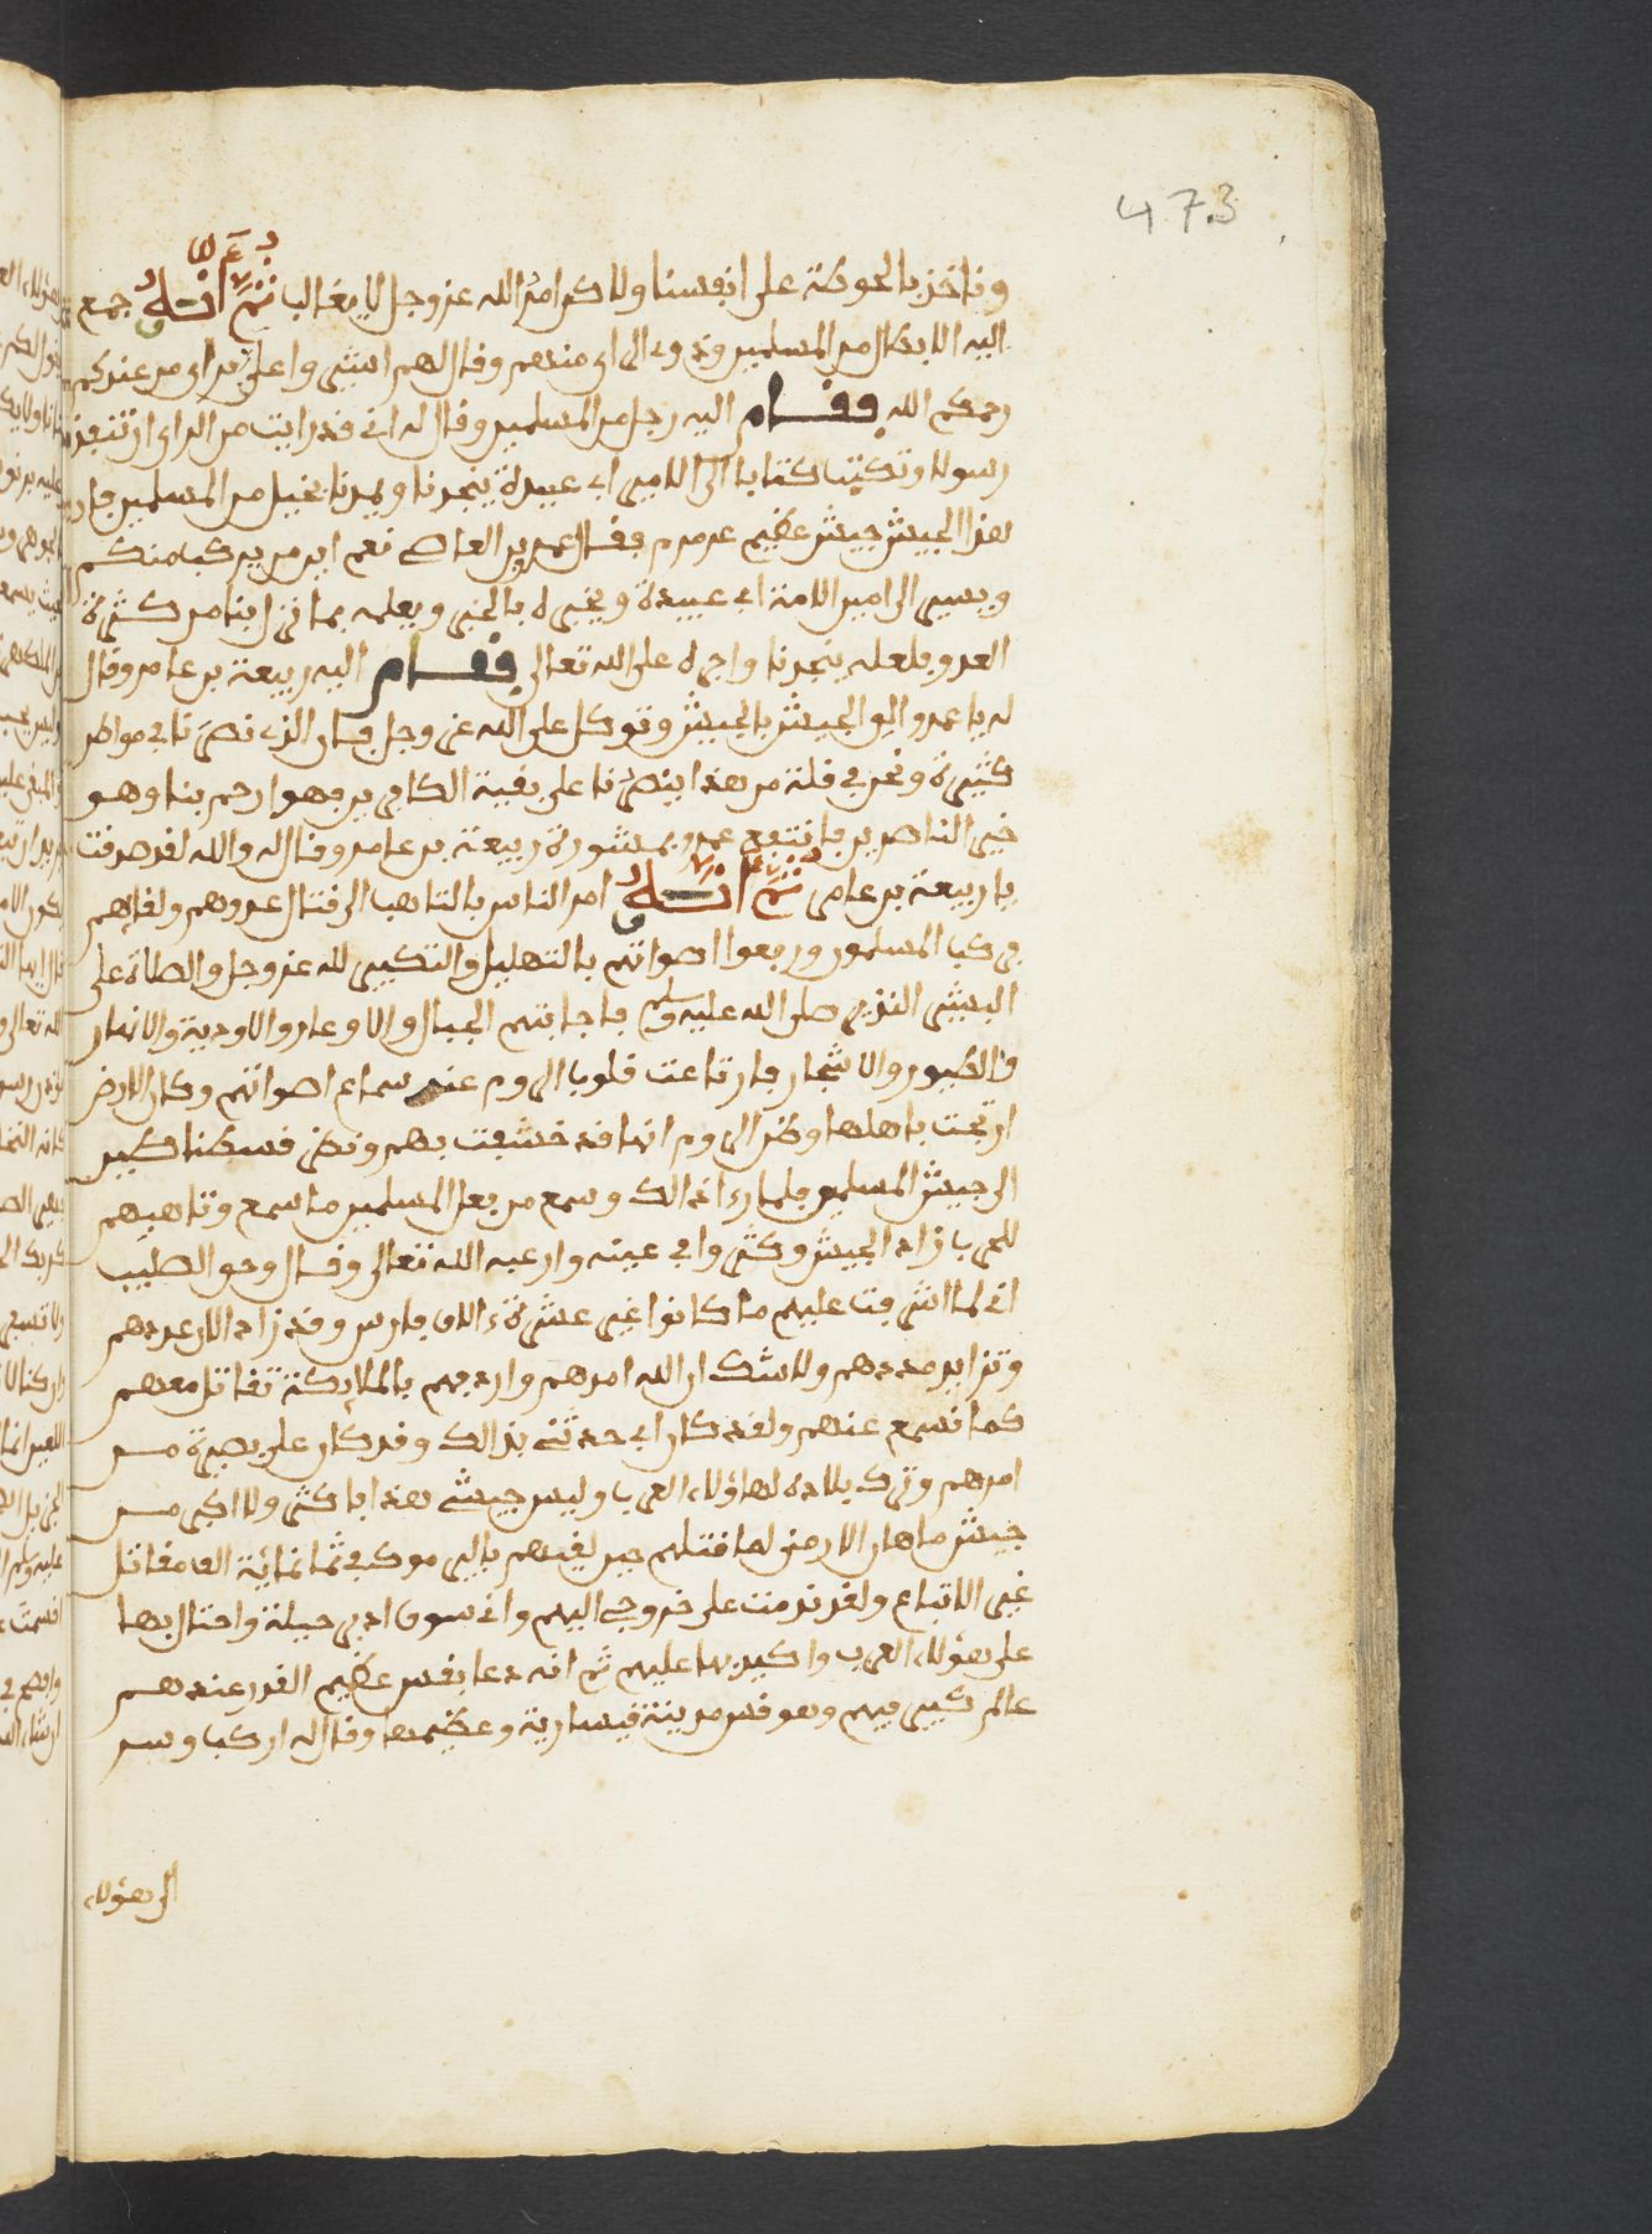 473
وناخذ بالحوطة على انفسنا ولاكن امر الله عز وجل لا يغالب ثم انه جمع
اليه الابطال من المسلمين وذوي الراي منهم وقال لهم اشيروا علي براي من عندكم
رحمكم الله فقام اليه رجل من المسلمين وقال له اني قد رايت من الراي ان تنفذ
رسولا وتكتب كتابا الى الامير ابي عبيدة ينجدنا ويمدنا بخيل من المسلمين فان
هذا الجيش جيش عظيم عرمرم فقال عمرو بن العاص نعم اين من يركب منكم
ويسير الى امين الامة ابي عبيدة ويخبره بالخبر ويعلمه بما نزل بنا من كثرة
العدو فلعله ينجدنا واجره على الله تعالى فقام اليه ربيعة بن عامر وقال
له يا عمرو الو الجيش بالجيش وتوكل على الله عز وجل فان الذي نصرنا في مواطن
كثيرة ونحن في قلة من هذا ينصرنا على بقية الكافرين فهو ارحم بنا وهو
خير الناصرين فانتفع عمرو بمشورة ربيعة بن عامر وقال له والله لقد صدقت
يا ربيعة بن عامر ثم انه امر الناس بالتاهب الى قتال عدوهم ولقائهم
فركب المسلمون ورفعوا اصواتهم بالتهليل والتكبير لله عز وجل والصلاة على
البشير النذير صلى الله عليه وسلم فاجابتهم الجبال والاوعار والاودية والانهار
والطيور والاشجار فارتاعت قلوب الروم عند سماع اصواتهم وكان الارض
ارتجت باهلها وظن الروم انها قد خسفت بهم ونظر قسطنا كبير
الى جيش المسلمين فلما راء اذالك وسمع من فعل المسلمين ما سمع وتاهبهم
للحرب زاد الجيش وكثروا في عينه وارعبه الله تعالى وقال وحق الصليب
اني لما اشرفت عليهم ما كانوا غير عشرة ءالاف فارس وقد زاد الان عددهم
وتزايد مددهم ولا شك ان الله امدهم واردفهم بالملائكة تقاتل معهم
كما نسمع عنهم ولقد كان ابي حدثني بذالك وقد كان على بصيرة مـــن
امرهم وترك بلاده لهاؤلاء العرب وليس جيشي هذا باكثر ولا اكبر مـــن
جيش ماهان الارمني لما قتلهم حين لقيهم باليرموك في ثمانمائة الف مقاتل
غير الاتباع ولقد ندمت على خروجي اليهم واني سوف ادبر حيلة واحتال بها
على هؤلاء العرب واكيد بها عليهم ثم انه دعا بقس عظيم القدر عندهـــم
عالم كبير فيهم وهو قس مدينة قيسارية وعظيمها وقال له اركب وسر
الى هؤلاء